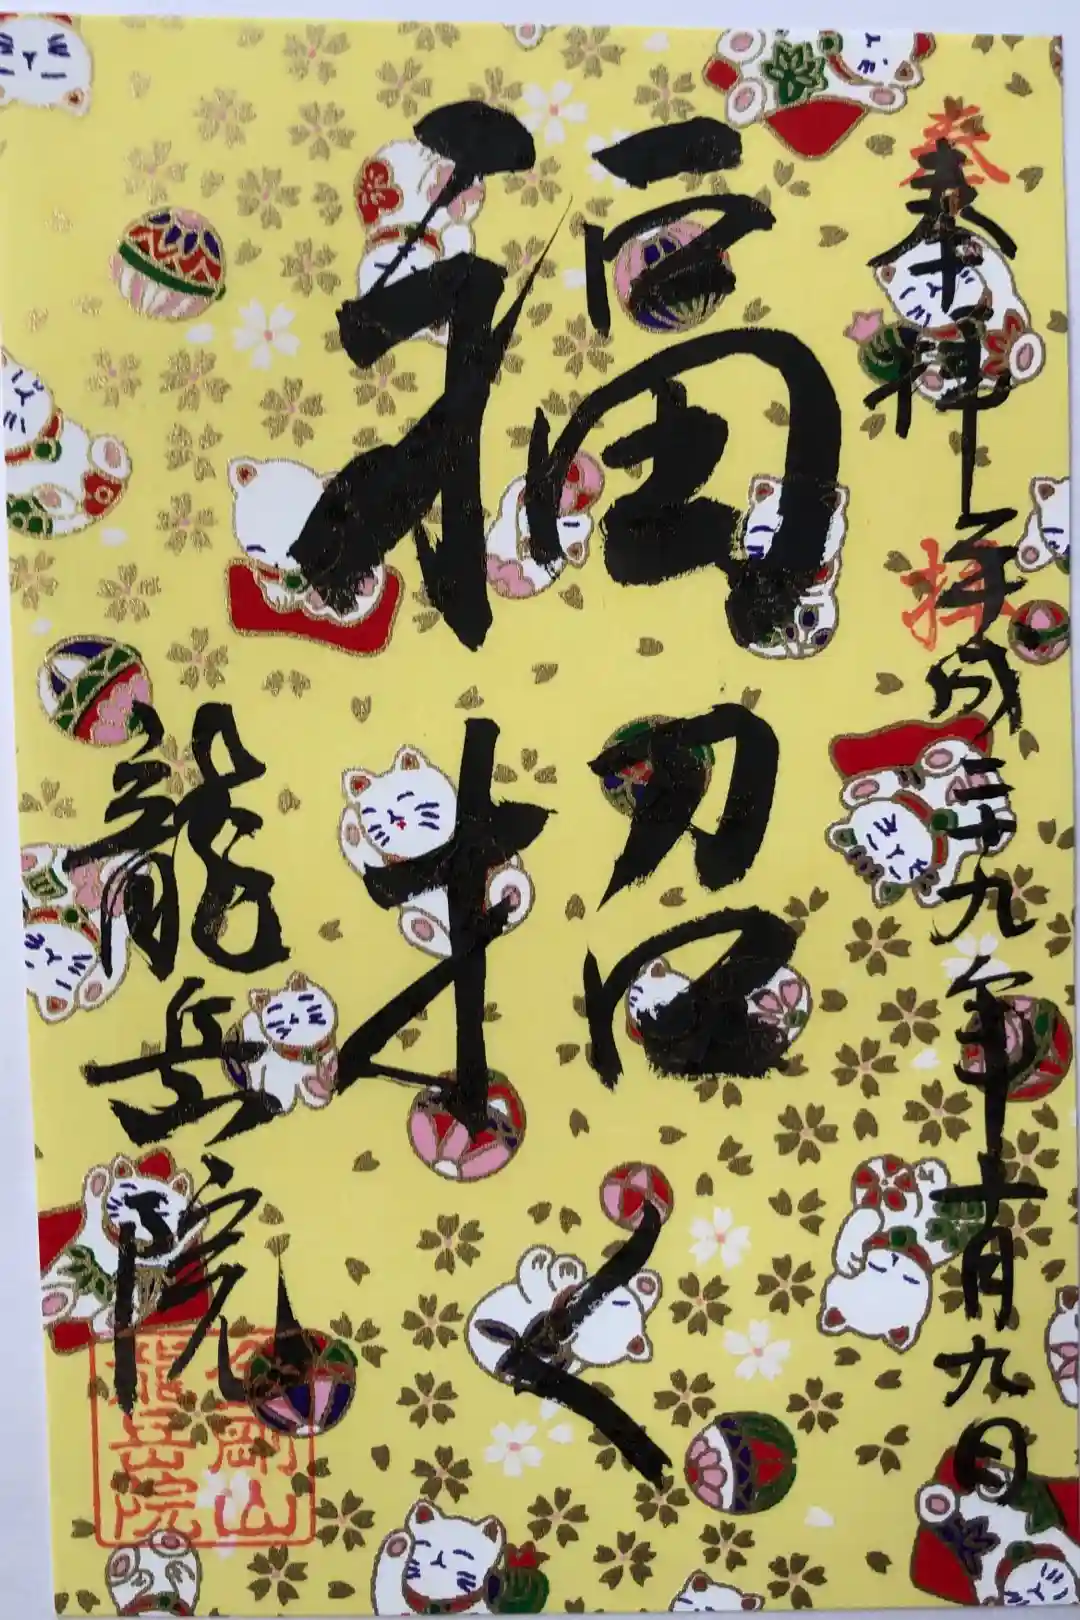 奉拝 平成二十九年十月九日
奉
拝
福招く
龍岳院
龍岳院